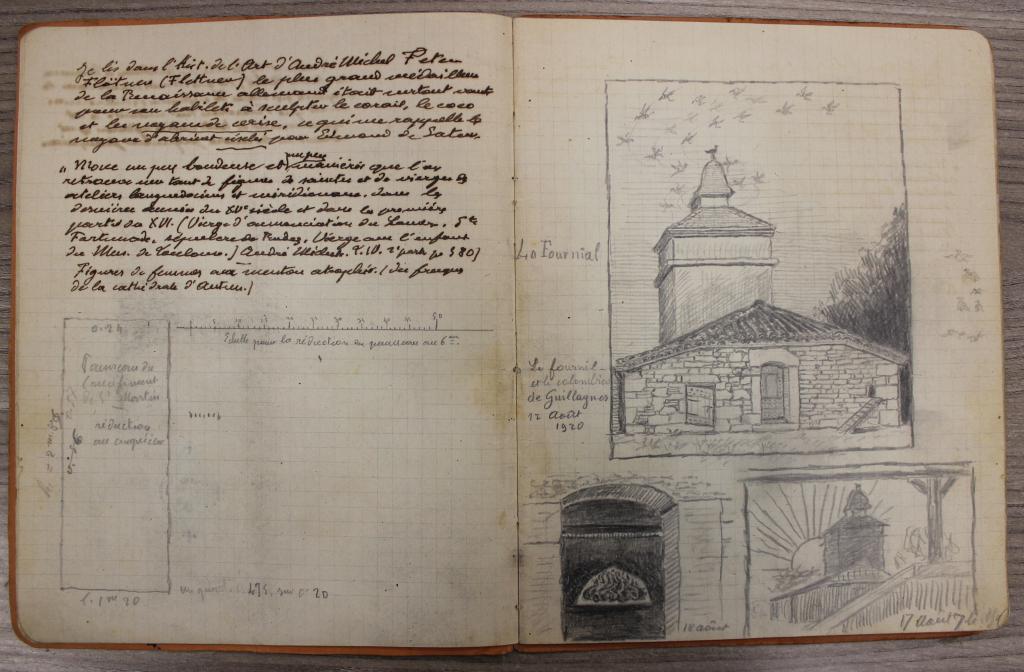 Je lis dans l'Hist. de l'Art d'André Michel Peter
Flötner (Flettner) le plus grand médailleur
de la Renaissance allemande était surtout vanté
pour son habileté à sculpter le corail, le coco
et les noyaux de cerise, ce qui me rappelle le
noyau d'abricot par Edmond
un peu
" Moue un peu boudeuse et maniérée que l'on
retrouve sur tant de figures de saintes et de vierges des
ateliers languedociens et méridionaux dans les
dernières années du XVe siècle et dans la première
partie du XVI. (Vierge d'annonciation du Louvre, Ste
Fortunade, sépulcre de Rodez, Vierge avec l'enfant
du Mus. de Toulouse.) André Michel. T. IV. 2e part. p 580)
Figures de femmes au menton atrophié. (des fresques
de la cathédrale d'Autun.)
50
Echelle pour la réduction du panneau au 6e
0.24
Panneau du
de St Martin
réduction
au cinquième
h.
l. 1m 20
sur 0.20
Le Fournial
Le fournil
et le colombier
de Guillagnes
12 Août
1920
18 août
17 août 7